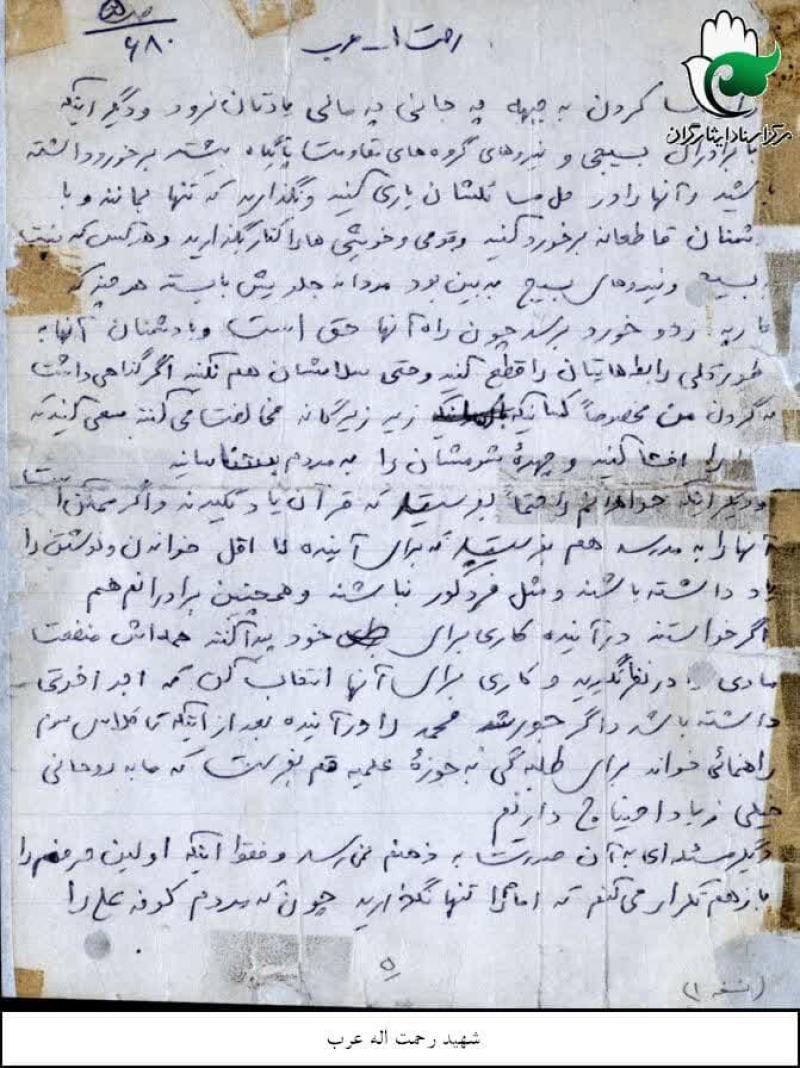 ۶۸۰
رحمت ا - عرب
مرکز اسناد ایثارگران
کردن به جبهه چه جانی چه مالی یادتان نرود و دیگر اینکه
با برادران بسیجی و نیروهای گروه های مقاومت پایگاه بیشتر برخورد داشته
باشید و آنها را در حل مسائلشان یاری کنید و نگذارید که تنها بمانند و با
دشمنان قاطعانه برخورد کنید و قومی و خویشی ها را کنار بگذارید و هر کس که نسبت
بسیج و نیروهای بسیج بدبین بود مردانه جلویش بایسته هر چند که
کار به زد و خورد برسد چون راه آنها حق است و با دشمنان آنها به
طور کلی رابط هایتان را قطع کنید و حتی سلامشان هم نکنید اگر گناهی داشت
به گردن من مخصوصاً کسانیکه زیر زیرکانه مخالفت می کنند سعی کنید که
را افشا کنید و چهره شومشان را به مردم بشناسانید
و دیگر اینکه خواهرانم را حتماً بفرستید که قرآن یاد بگیرند و اگر ممکن است
آنها را به مدرسه هم بفرستید که برای آینده لا اقل خواندن و نوشتن را
یاد داشته باشند و مثل فرد کور نباشند و همچنین برادرانم هم
اگر خواستند در آینده کاری برای خود پیدا کنند همه اش منفعت
مادی را در نظر نگیرید و کاری برای آنها انتخاب کن که اجر اخروی
داشته باشد و اگر محمد را در آینده بعد از اینکه تا کلاس سوم
راهنمائی خواند برای طلبه گی به حوزه علمیه قم بفرست که ما به روحانی
خیلی زیاد احتیاج داریم
دیگر مسئله ای به آن صورت به ذهنم نمی رسد و فقط اینکه اولین حرفم را
باز هم تکرار می کنم که امام را تنها نگذارید چون که مردم کوفه علی را
۵
(نسخه ۱)
شهید رحمت اله عرب